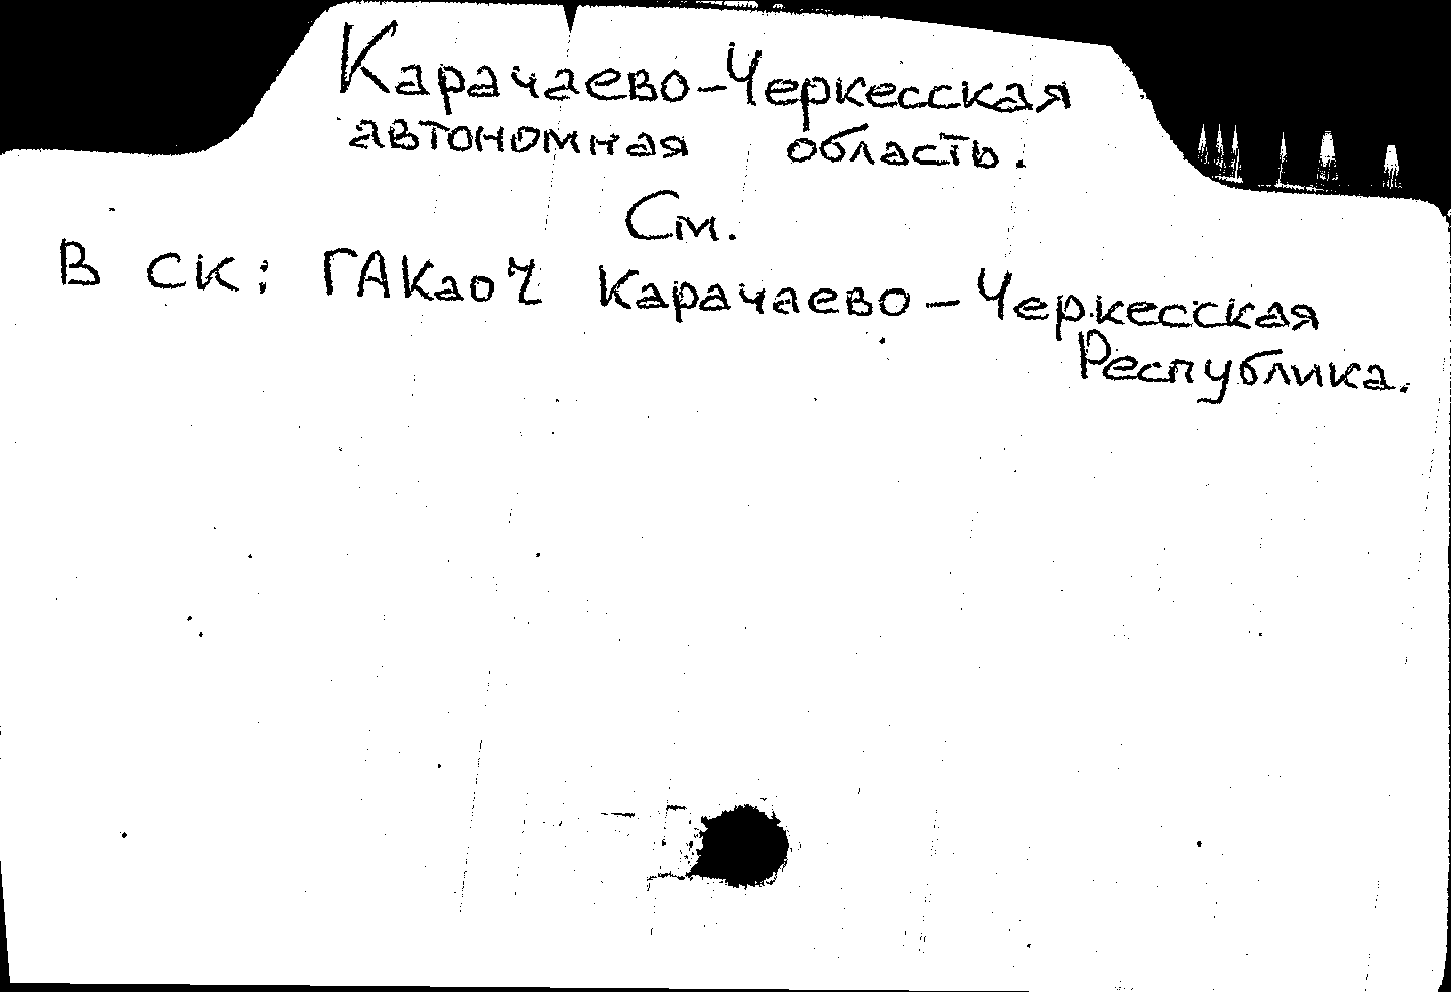 Карачаево-Черкесская
автономная область.
См.
В СК: ГАКаоЧ Карачаево-Черкесская
Республика.